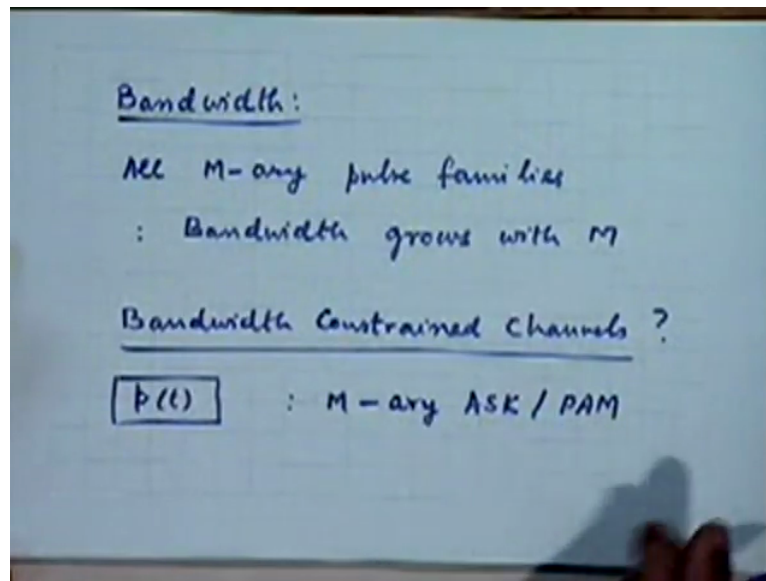 Bandwidth:
All M-ary pulse families
: Bandwidth grows with M
Bandwidth Constrained Channels ?
p(t) : M-ary ASK / PAM